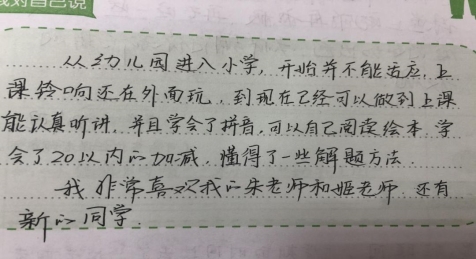 我对自己说
从幼儿园进入小学，开始并不能适应，上
课铃响还在外面玩，到现在已经可以做到上课
能认真听讲，并且学会了拼音，可以自己阅读绘本，学
会了20以内的加减，懂得了一些解题方法．
我非常喜欢我的朱老师和姬老师，还有
新的同学．